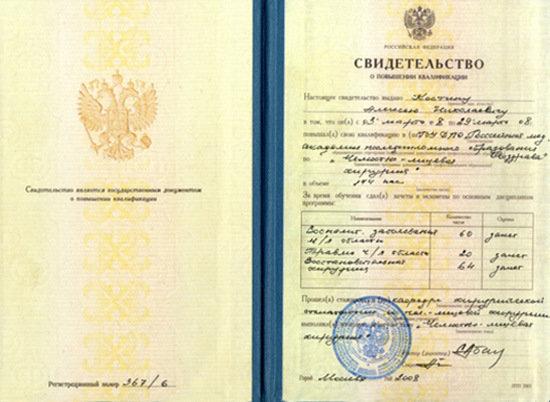 Свидетельство является государственным документом
о повышении квалификации
Регистрационный номер 367/6
РОССИЙСКАЯ ФЕДЕРАЦИЯ
СВИДЕТЕЛЬСТВО
О ПОВЫШЕНИИ КВАЛИФИКАЦИИ
Настоящее свидетельство выдано Костину
Алексею Николаевичу
в том, что он(а) с 3 марта 08 29 марта 08
повысил(а) свою квалификацию в (на) ГОУ ДПО Российская мед.
академия последипломного образования Росздрава
по "Челюстно-лицевая
хирургия"
в объеме 144 час.
За время обучения сдал(а) зачеты и экзамены по основным дисциплинам
программы:
Наименование Количество часов Оценка
Воспалит. заболевания 60 зачет
ч/л области
Травма ч/л области 20 зачет
Восстановительная 64 зачет
хирургия
Прошел(а) стажировку в (на) кафедре хирургической
стоматологии и чел.-лицевой хирургии
выполнил(а) "Челюстно-лицевая
хирургия"
Ректор (директор)
Город Москва год 2008